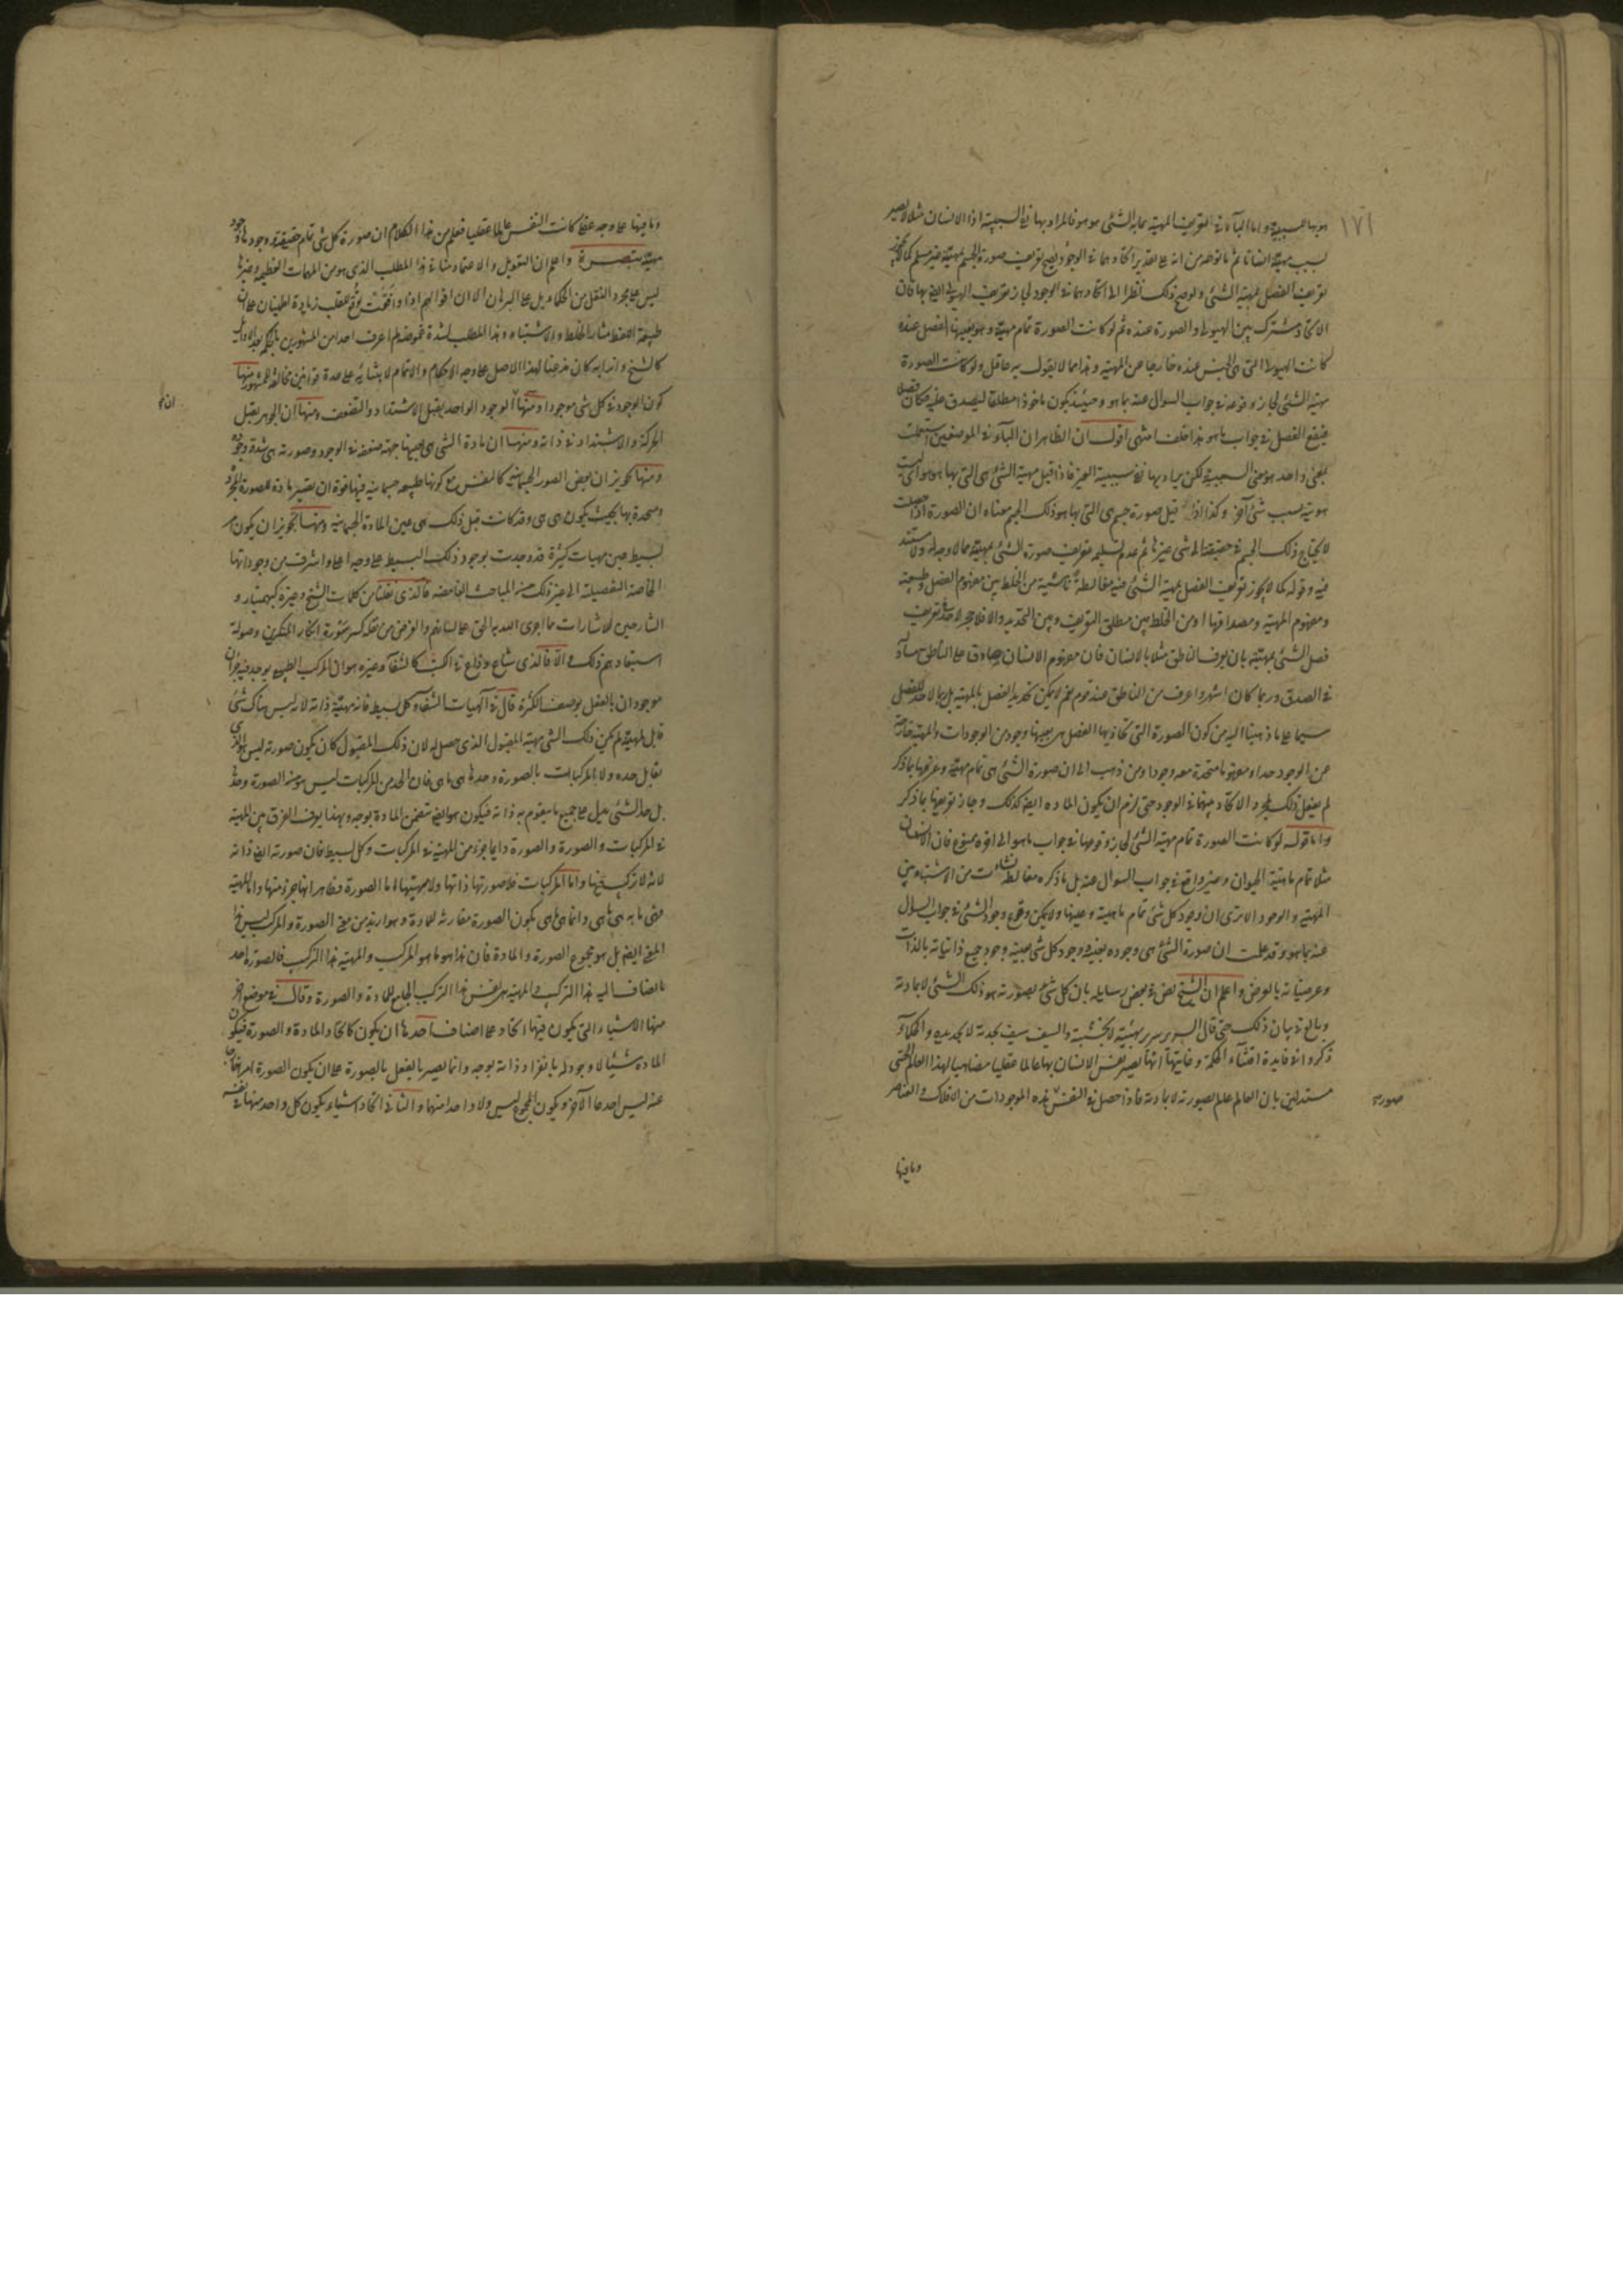 ١٧١
هو بها للسببية واما الباء في تعريف المهية بما به الشئ هو هو فالمراد بها نفي السببية اذ الانسان مثلا لا يصير
لسبب مهية انسانا ثم ما توهمه من انه على تقدير اتحادهما في الوجود يصح تعريف صورة الجسم بمهيته غير مسلم كما لا يجوز
تعريف الفصل بمهية الشئ ولو صح ذلك نظرا الى اتحادهما في الوجود لجاز تعريف الهيولى ايض بها فان
الاتحاد مشترك بين الهيولى والصورة عنده ثم لو كانت الصورة تمام مهية وهو بعينها الفصل عنده
كانت الهيولى التي هي الجنس عنده خارجا عن المهية وهذا مما لا يقول به عاقل ولو كانت الصورة
مهية الشئ لجاز وقوعه في جواب السوال عنه بما هو وحينئذ يكون ماخوذا مطلقا ليصدق عليه فكان فصلا
فيقع الفصل في جواب ما هو هذا خلف انتهى اقول ان الظاهر ان الباء في الموضعين استعملت
بمعنى واحد هو معنى السببية لكن يراد بها نفي سببية الغير فاذا قيل مهية الشئ هي التي بها هو هو اي ليست
هويته بسبب شئ آخر وكذا اذا قيل صورة جسم هي التي بها هو ذلك الجسم معناه ان الصورة اذا حصلت
لا يحتاج ذلك الجسم في حقيقته الى شئ غيرها ثم عدم تسليمه تعريف صورة الشئ بمهيته مما لا وجه له ولا مستند
فيه وقوله كما لا يجوز تعريف الفصل بمهية الشئ فيه مغالطة ناشية من الخلط بين مفهوم الفصل وطبيعته
ومفهوم المهية ومصداقها او من الخلط بين مطلق التعريف وبين التحديد والا فلا حجر لاحد في تعريف
فصل الشئ بمهيته بان يعرف الناطق مثلا بالانسان فان مفهوم الانسان صادق على الناطق مساو
في الصدق وربما كان اشهر واعرف من الناطق عند قوم نعم لا يمكن تحديد الفصل بالمهية بل ربما لا حد للفصل
سيما على ما ذهبنا اليه من كون الصورة التي تحاذيها الفصل هي بعينها وجود من الوجودات والمهية خارجة
عن الوجود حدا ومفهوما متحدة معه وجودا ومن ذهب الى ان صورة الشئ هي تمام مهيته وعرفها بما ذكر
لم يفعل ذلك لمجرد الاتحاد بينهما في الوجود حتى لزم ان يكون المادة ايض كذلك وجاز تعريفها بما ذكر
واما قوله لو كانت الصورة تمام مهية الشئ لجاز وقوعها في جواب ما هو الى اخره ممنوع فان الانسان
مثلا تمام ماهية الحيوان وغير واقع في جواب السوال عنه بل ما ذكره مغالطة نشات من الاشتباه بين
المهية والوجود الا ترى ان وجود كل شئ تمام ماهيته وعينها ولا يمكن وقوع وجود الشئ في جواب السوال
عنه بما هو وقد علمت ان صورة الشئ هي وجوده بعينه ووجود كل شئ بعينه وجود جميع ذاتياته بالذات
وعرضياته بالعرض واعلم ان الشيخ نص في بعض رسايله بان كل شئ بصورته هو ذلك الشئ لا بمادته
وبالغ في بيان ذلك حتى قال السرير سرير بهيئته لا بخشبته والسيف سيف بحدته لا بحديده والحكماء
ذكروا في فايدة اقتناء الحكمة وغايتها انها تصير نفس الانسان بها عالما عقليا مضاهيا لهذا العالم الحسي
مستدلين بان العالم عالم بصورته لا بمادته فاذا حصل في النفس هذه الموجودات من الافلاك والعناصر
صورة
وما فيها
وما فيها على وجه عقلي كانت النفس عالما عقليا فعلم من هذا الكلام ان صورة كل شئ تمام حقيقته ووجودها وجود
مهيته تبصرة واعلم ان التعويل والاعتماد منا في هذا المطلب الذي هو من المهمات العظيمة وغيرها
ليس على مجرد النقل من الحكماء بل على البرهان الا ان اقوالهم اذا وافقت تورث للقلب زيادة اطمينان على ان
طبيعة اللفظ مثار الغلط والاشتباه وهذا المطلب لشدة غموضه لم اعرف احدا من المشهورين بالحكمة بعد الاوائل
كالشيخ واترابه كان مذعنا لهذا الاصل على وجه الاحكام والاتمام لابتنائه على عدة قوانين مخالفة للمشهور منها
كون الوجود في كل شئ موجودا ومنها ان الوجود الواحد يقبل الاشتداد والتضعف ومنها ان الجوهر يقبل
الحركة والاشتداد في ذاته ومنها ان مادة الشئ هي بعينها جهة ضعفه في الوجود وصورته هي شدة وجوده
ومنها تجويز ان بعض الصور الجسمانية كالنفس مع كونها طبيعة جسمانية فيها قوة ان تصير مادة للصورة المجردة
ومتحدة بها بحيث يكون هي هي وقد كانت قبل ذلك هي عين المادة الجسمانية ومنها تجويز ان يكون امر
بسيط عين مهيات كثيرة قد وجدت بوجود ذلك البسيط على وجه اعلى واشرف من وجوداتها
الخاصة التفصيلية الى غير ذلك من المباحث الغامضة فالذي نقلنا من كلمات الشيخ وغيره كبهمنيار و
الشارحين للاشارات مما اجرى الله به الحق على لسانهم والغرض من نقله كسر سورة انكار المنكرين وصولة
استبعادهم ذلك والا فالذي شاع وذاع في الكتب كالشفاء وغيره هو ان المركب الطبيعي يوجد فيه جزان
موجودان بالفعل بوصف الكثرة قال في الهيات الشفاء كل بسيط فانه مهيته ذاته لانه ليس هناك شئ
قابل لمهيته لم يكن ذلك الشئ مهيته المقبول الذي حصل له لان ذلك المقبول كان يكون صورته ليس هو الذي
يقابل حده ولا المركبات بالصورة وحدها هي ما هي فان الحد من المركبات ليس هو من الصورة وحدها
بل حد الشئ يدل على جميع ما يتقوم به ذاته فيكون هو ايض يتضمن المادة بوجه وبهذا يعرف الفرق بين المهية
في المركبات والصورة والصورة دايما جزء من المهية في المركبات وكل بسيط فان صورته ايض ذاته
لانه لا تركيب فيها واما المركبات فلا صورتها ذاتها ولا مهيتها اما الصورة فظاهر انها جزء منها واما المهية
فهي ما به هي ما هي وانما هي ما هي بكون الصورة مقارنة للمادة وهو ازيد من معنى الصورة والمركب ليس هذا
المعنى ايض بل هو مجموع الصورة والمادة فان هذا هو ما هو المركب والمهية هذا التركيب فالصورة احد
ما يضاف اليه هذا التركيب والمهية هي نفس هذا التركيب الجامع للمادة والصورة وقال في موضع آخر
منها الاشياء التي يكون فيها اتحاد على اصناف احدها ان يكون كاتحاد المادة والصورة فيكون
المادة شيئا لا وجود له بانفراد ذاته بوجه وانما يصير بالفعل بالصورة على ان يكون الصورة امرا خارجا
عنه ليس احدهما الآخر ويكون المجموع ليس ولا واحدا منهما والثاني اتحاد اشياء يكون كل واحد منها في نفسه